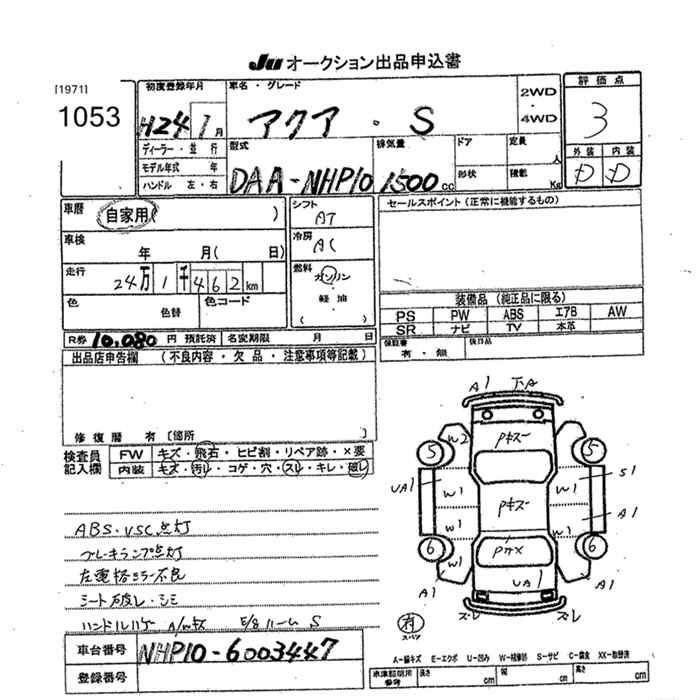 Ju オークション出品申込書
[1971]
1053
初度登録年月
H24 1月
車名・グレード
アクア・S
2WD
・
4WD
評価点
3
外装 内装
D D
ディーラー・並行
モデル年式 年
ハンドル 左・右
型式
DAA-NHP10
排気量
1500cc
ドア
形状
定員 人
積載 Kg
車歴 自家用( )
車検 年 月( 日)
走行 24万1千462km
色 色替
色コード
シフト
AT
冷房
AC
燃料
ガソリン
軽油
( )
セールスポイント(正常に機能するもの)
装備品(純正品に限る)
PS PW ABS エアB AW
SR ナビ TV 本革
保証書 有・無
後日品
R券 10,080円 預託済 名変期限 月 日
出品店申告欄(不良内容・欠品・注意事項等記載)
修復歴 有〔箇所 〕
検査員
記入欄
FW キズ・飛石・ヒビ割・リペア跡・×要
内装 キズ・汚レ・コゲ・穴・スレ・キレ・破レ
ABS・VSC点灯
ブレーキランプ点灯
左電格ミラー不良
シート破レ・シミ
ハンドルハゲ
ルーム S
車台番号 NHP10-6003447
登録番号
A1
W2
Pキズ
5
5
UA1
W1
W1
S1
Pキズ
W1
W1
A1
6
6
UA1
A1
A1
ズレ
ズレ
スペア
A-線キズ E-エクボ U-凹み W-補修跡 S-サビ C-腐食 XX-取替済
長さ cm
幅 cm
高さ cm